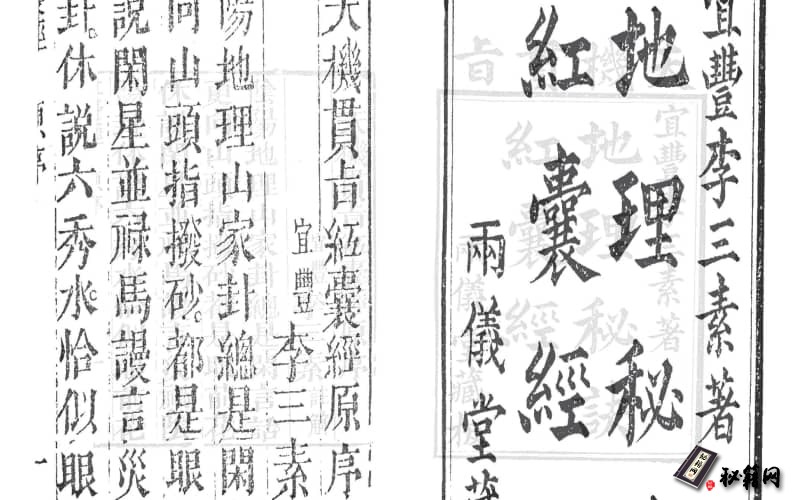 宜豐李三素著
地理秘
紅囊經
兩儀堂
天機貫㫖紅囊經原序
宜豐李三素
陽地理山家卦總是閑
山頭指撥砂。都是眼
說閑星並禄馬謾言災
卦。休說六秀水。恰似眼
原序 一
秘籍网